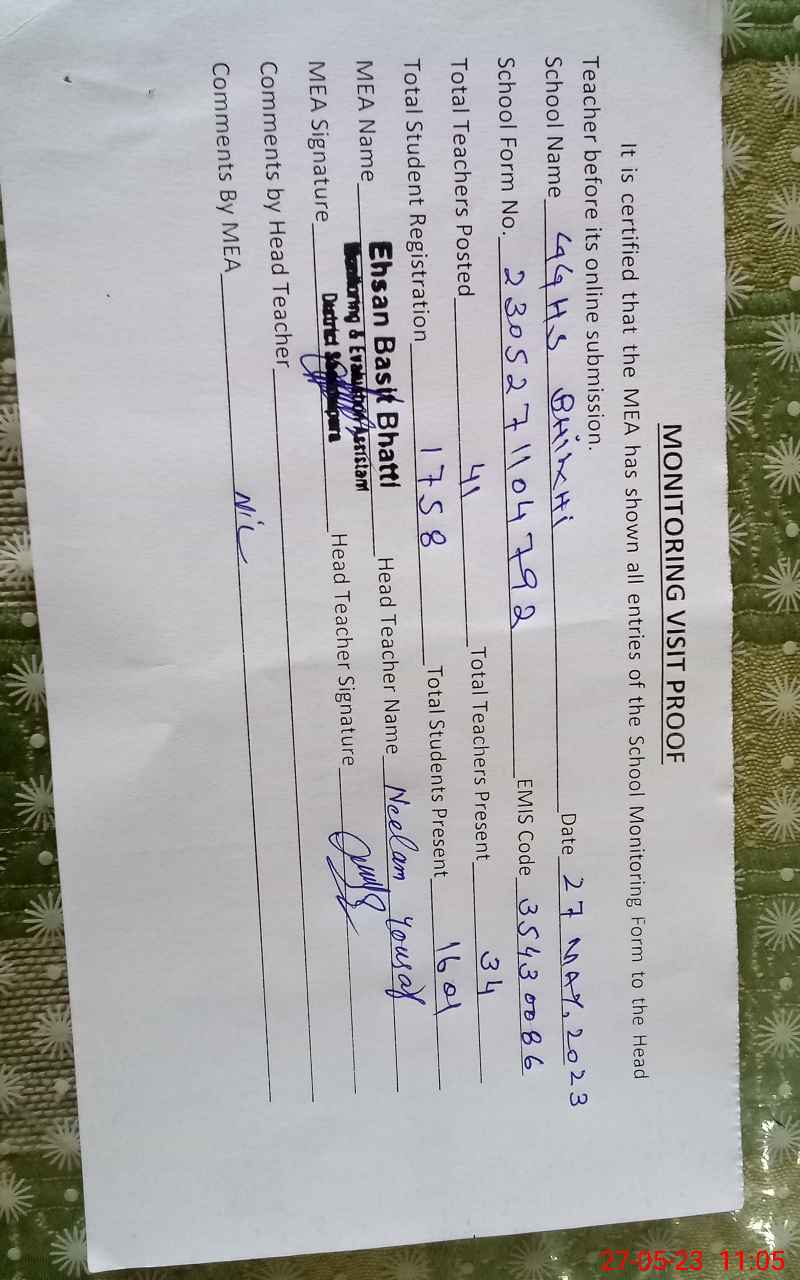 MONITORING VISIT PROOF
It is certified that the MEA has shown all entries of the School Monitoring Form to the Head
Teacher before its online submission.
School Name GGHS BHIKHI Date 27 MAY, 2023
School Form No. 2305271104792 EMIS Code 35430086
Total Teachers Posted 41 Total Teachers Present 34
Total Student Registration 1758 Total Students Present 1601
MEA Name Ehsan Basit Bhatti Head Teacher Name Neelam Yousaf
Monitoring & Evaluation Assistant
MEA Signature District Head Teacher Signature
Comments by Head Teacher
Comments By MEA Nil
27-05-23 11:05